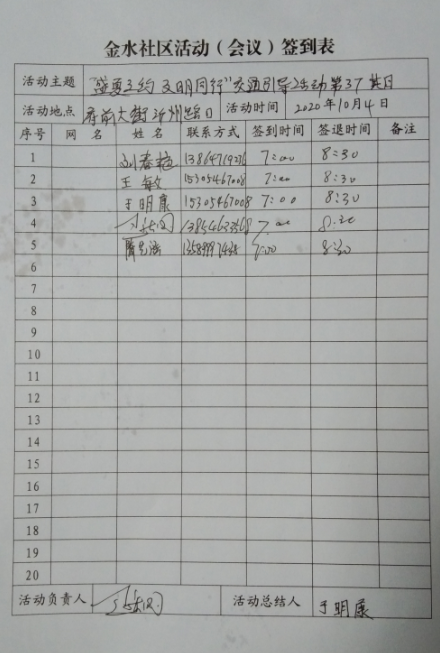 金水社区活动（会议）签到表
活动主题 文明同行"交通引导活动第37期
活动地点 大街 路口 活动时间 2020年10月4日
序号 网 名 姓 名 联系方式 签到时间 签退时间 备注
1 刘春梅 7:00 8:30
2 王敏 15305467008 7:00 8:30
3 于明康 15305467008 7:00 8:30
4 7:00 8:30
5 7:00 8:30
6
7
8
9
10
11
12
13
14
15
16
17
18
19
20
活动负责人 活动总结人 于明康